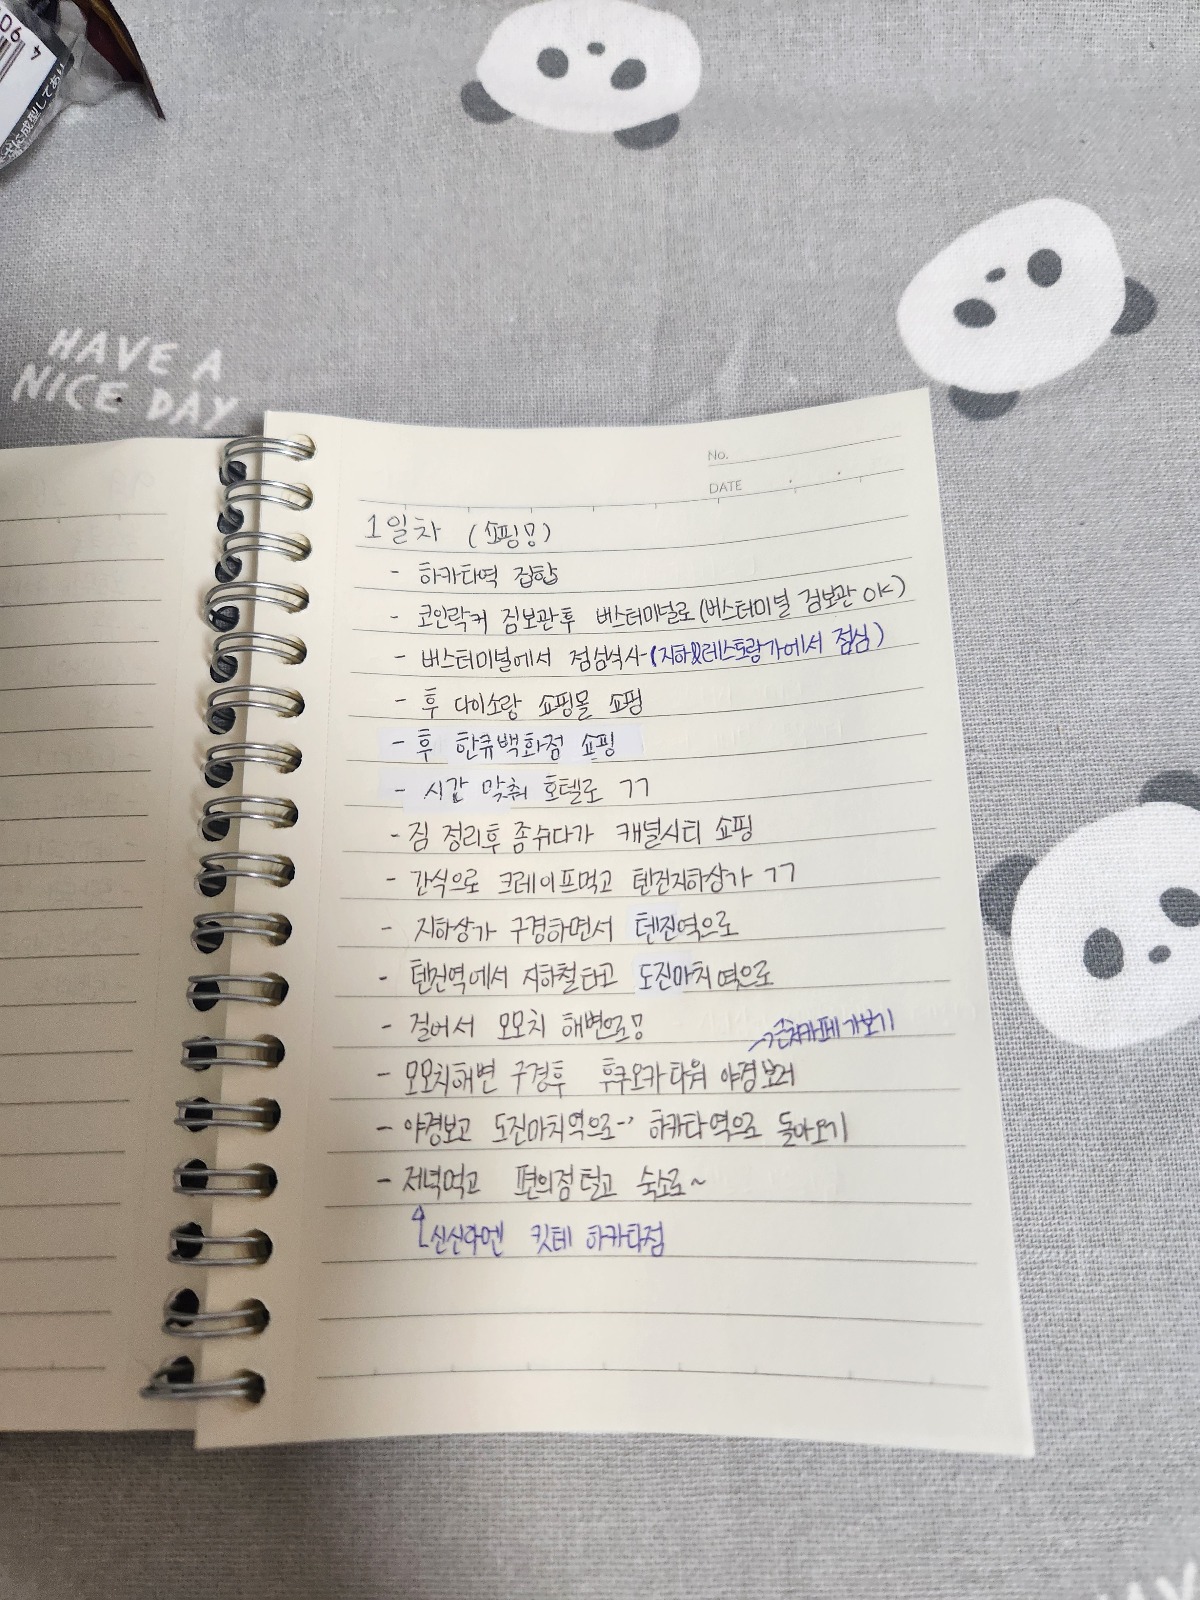 06 4
成型してあり
HAVE A
NICE DAY
No.
DATE
1일차 (쇼핑몽)
- 하카타역 집합
- 코인락커 짐보관후 버스터미널로(버스터미널 짐보관 OK)
- 버스터미널에서 점심식사(지하&레스토랑가에서 점심)
- 후 다이소랑 쇼핑몰 쇼핑
- 후 한큐백화점 쇼핑
- 시간 맞춰 호텔로 ㄱㄱ
- 짐 정리후 좀 쉬다가 캐널시티 쇼핑
- 간식으로 크레이프먹고 텐진지하상가 ㄱㄱ
- 지하상가 구경하면서 텐진역으로
- 텐진역에서 지하철타고 도진마치역으로
- 걸어서 모모치 해변으로!
→ 근처카페 가보기
- 모모치해변 구경후 후쿠오카타워 야경보러
- 야경보고 도진마치역으로→ 하카타역으로 돌아오기
- 저녁먹고 편의점털고 숙소로~
신신라멘 킷테 하카타점